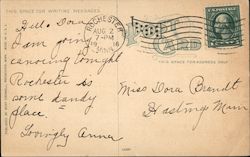 THIS SPACE FOR WRITING MESSAGES.
Hello Dora
I am going
canoeing tonight
Rochester is
some dandy
place –
Lovingly Anna
ROCHESTER
AUG 2
7-PM
1916
MINN.
Miss Dora Brandt
Hastings Minn